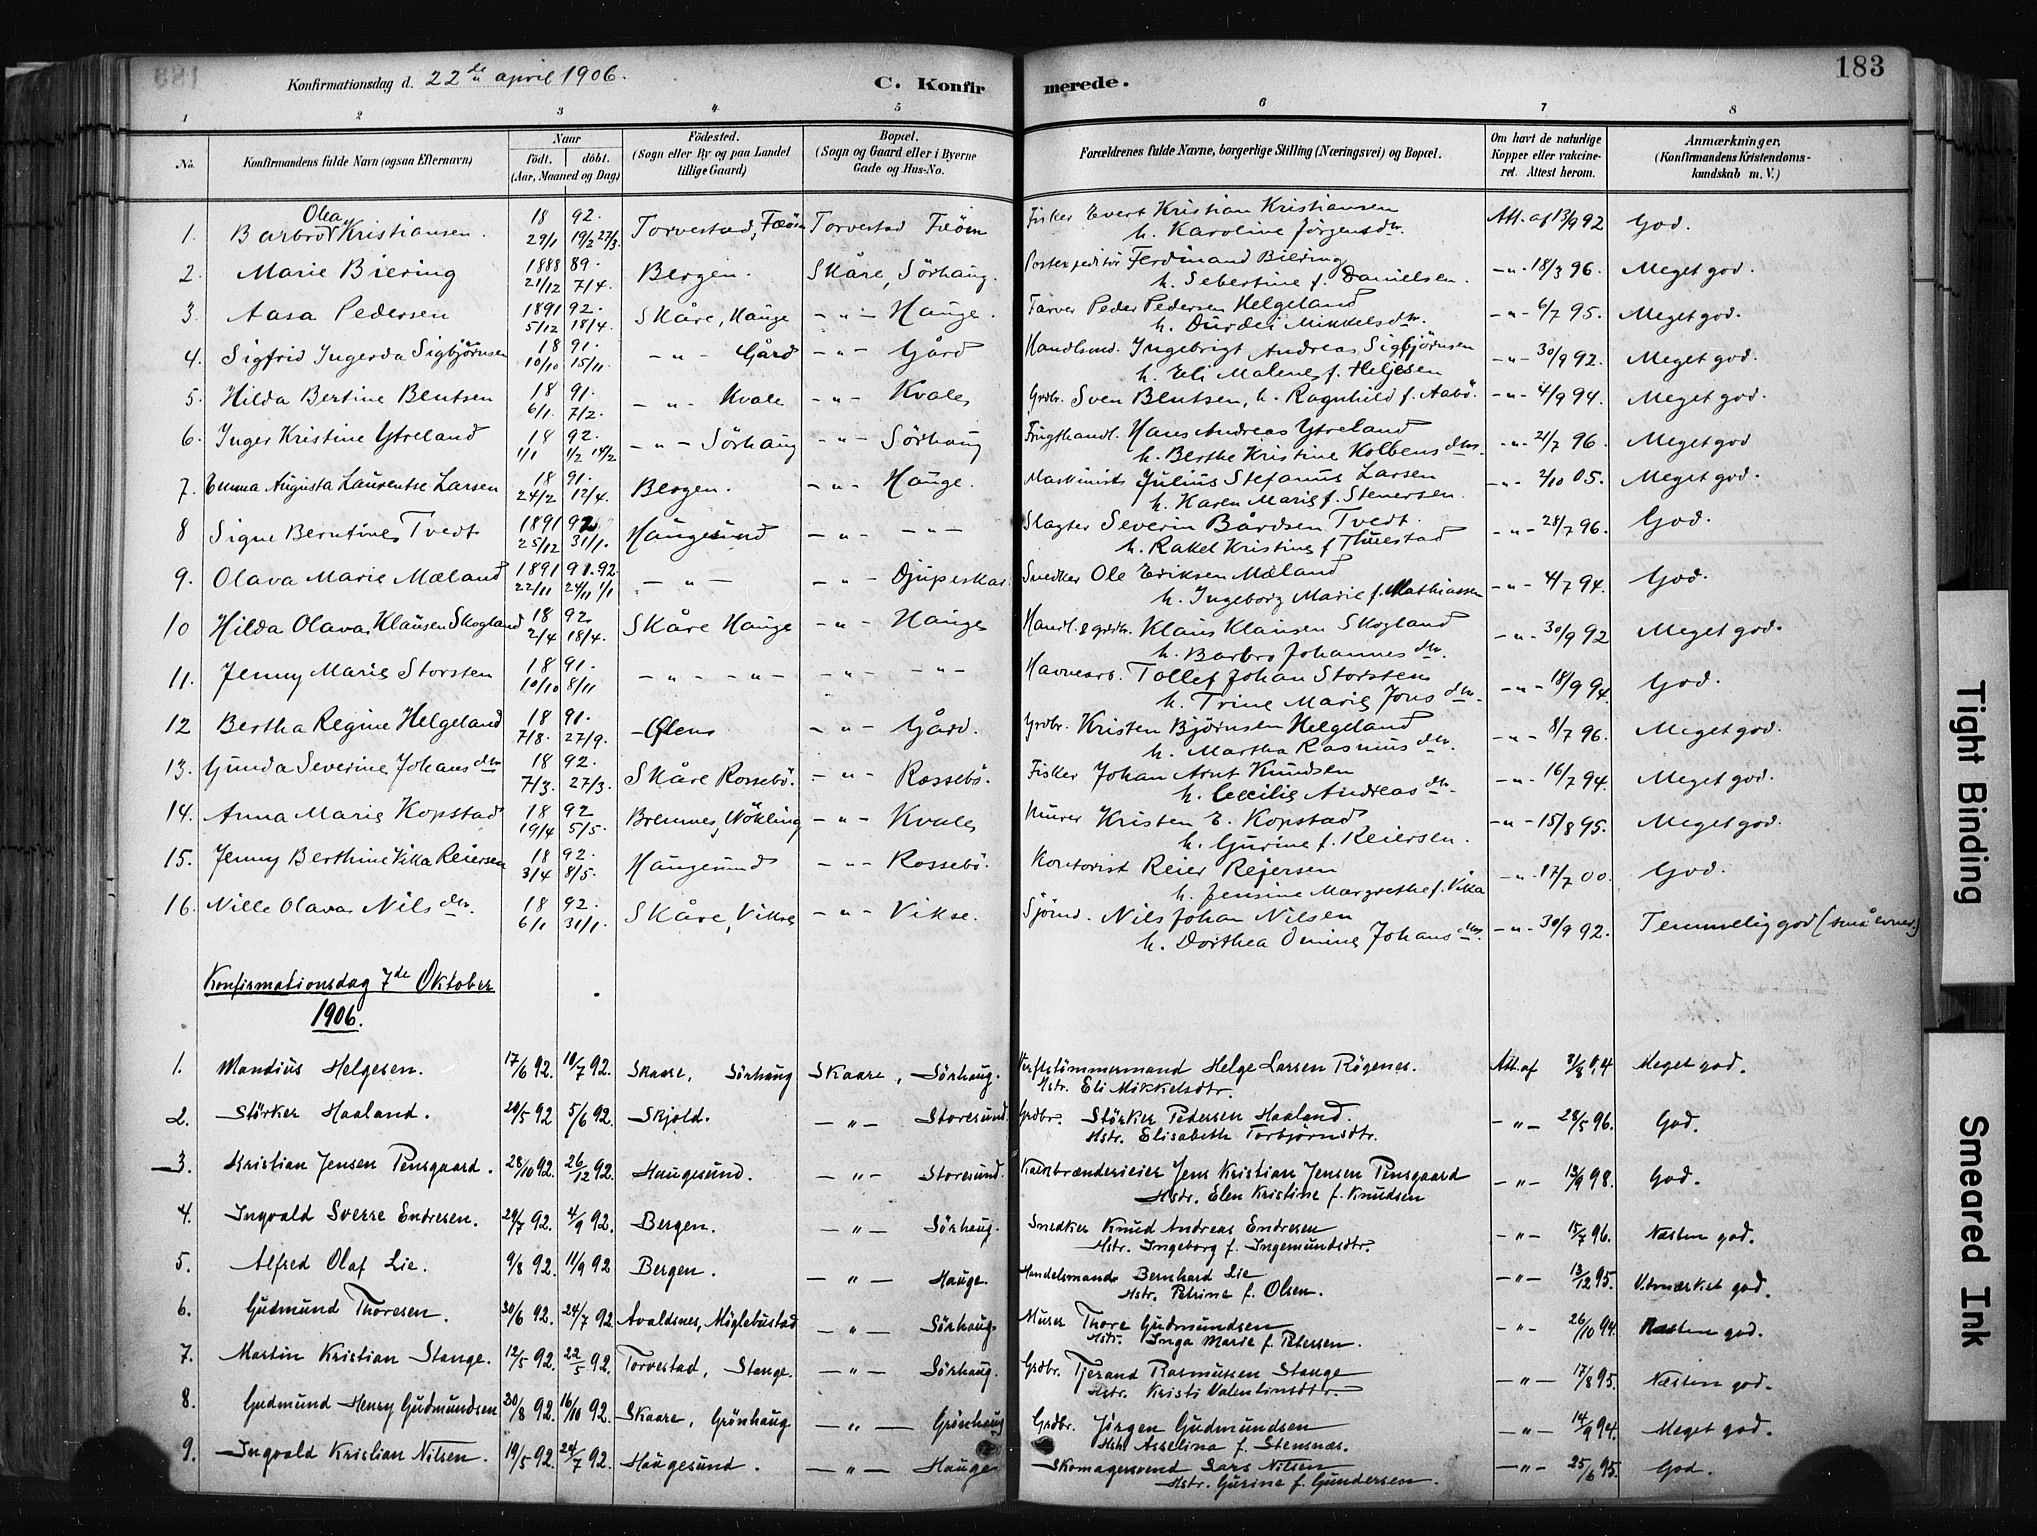 183
Konfirmationsdag d. 22de april 1906.
C. Konfirmerede.
1 2 3 4 5 6 7 8
No. Konfirmandens fulde Navn (ogsaa Efternavn) Naar født. døbt. (Aar, Maaned og Dag) Födested. (Sogn eller By og paa Landet tillige Gaard) Bopæl. (Sogn og Gaard eller i Byerne Gade og Hus-No. Forældrenes fulde Navne, borgerlige Stilling (Næringsvei) og Bopæl. Om havt de naturlige Kopper eller vakcineret. Attest herom. Anmærkninger. (Konfirmandens Kristendomskundskab m. V.)
1. Barbro Olea Kristiansen. 18 92. 29/1 19/2 27/3 Torvestad, Fæöen Torvestad Fæöen Fisker Evert Kristian Kristiansen Att. af 13/9 92 God.
h. Karoline Jörgensdtr.
2. Marie Biering 1888 89. 21/12 7/4. Bergen. Skåre, Sörhaug. Postexpeditör Ferdinand Biering -"- 18/3 96. Meget god.
h. Sebertine f. Danielsen.
3. Aasa Pedersen 1891 92. 5/12 18/4. Skåre, Hauge -"- Hauge. Farver Peder Pedersen Helgeland -"- 6/7 95. Meget god.
h. Durdei Mikkelsdtr.
4. Sigfrid Ingerda Sigbjörnsen 18 91. 10/10 15/11 -"- Gård -"- Gård Handlsmd. Ingebrigt Andreas Sigbjörnsen -"- 30/9 92. Meget god.
h. Eli Malene f. Heljesen
5. Hilda Bertine Bentsen 18 91. 6/1. 7/2. -"- Kvale -"- Kvale Grdbr. Sven Bentsen, h. Ragnhild f. Aabö. -"- 4/9 94. Meget god.
6. Inger Kristine Ytreland 18 92. 1/1 1/2 14/2 -"- Sörhaug -"- Sörhaug Frugthandl. Hans Andreas Ytreland -"- 21/7 96. Meget god
h. Berthe Kristine Kolbensdtr.
7. Emma Augusta Laurentse Larsen 18 91. 24/2 12/4. Bergen. -"- Hauge. Maskinist Julius Stefanus Larsen -"- 2/10 05. Meget god.
h. Karen Marie f. Stenersen.
8 Signe Berntine Tvedt 1891 92 25/12 31/1. Haugesund -"- -"- Slagter Severin Bårdsen Tvedt. -"- 28/7 96. God.
h. Rakel Kristine f Thuestad
9. Olava Marie Mæland 1891 91.92. 22/11 24/11 1/1 -"- -"- Djupeskar. Snedker Ole Eriksen Mæland -"- 4/7 94. God.
h. Ingeborg Marie f. Mathiassen
10 Hilda Olava Klausen Skogland 18 92 2/4 18/4. Skåre Hauge -"- Hauge Handl. & grdbr. Klaus Klausen Skogland -"- 30/9 92 Meget god.
h. Barbro Johannesdtr.
11. Jenny Marie Storsten 18 91. 10/10 8/11 -"- -"- -"- -"- Havnearb. Tollef Johan Storsten -"- 18/9 94. God.
h. Trine Marie Jonsdtr.
12 Bertha Regine Helgeland 18 91. 7/8. 27/9. Ølen -"- Gård. Grdbr. Kristen Bjørnsen Helgeland -"- 8/7 96. Meget god.
h. Martha Rasmusdtr.
13. Gunda Severine Johansdtr 18 92. 7/3. 27/3. Skåre Rossebö. -"- Rossebö. Fisker Johan Arnt Knudsen -"- 16/7 94. Meget god.
h. Cecilie Andreasdtr.
14. Anna Marie Kopstad 18 92 19/4 5/5. Bremnes, Wökling -"- Kvale Murer Kristen E. Kopstad -"- 15/8 95. Meget god.
h. Gurine f. Reiersen.
15. Jenny Berthine Vika Reiersen 18 92. 3/4 8/5. Haugesund -"- Rossebö. Kontorist Reier Rejersen -"- 17/7 00. God.
h. Jensine Margrethe f. Vika
16. Nille Olava Nilsdtr. 18 92. 6/1 31/1. Skåre, Vikse -"- Vikse. Sjömd. Nils Johan Nilsen -"- 30/9 92. Temmelig god (små evner.)
h. Dorthea Omine Johansdtr.
Konfirmationsdag 7de Oktober
1906.
1. Mandius Helgesen. 17/6 92. 10/7 92. Skaare, Sörhaug Skaare, Sörhaug. Verftstömmermand Helge Larsen Rögenes. Att. af 3/8 04 Meget god.
Hstr. Eli Mikkelsdtr.
2. Störker Haaland. 20/5 92 5/6 92. Skjold. -"- Storesund Grdbr. Störker Pedersen Haaland. -"- 28/5 96. God.
Hstr. Elisabeth Torbjörnsdtr.
3. Kristian Jensen Pensgaard. 28/10 92. 26/12 92. Haugesund. -"- Storesund. Kalkbrænderieier Jens Kristian Jensen Pensgaard -"- 13/9 98. God.
Hstr. Elen Kristine f. Knudsen
4. Ingvald Sverre Endresen. 29/7 92. 4/9 92. Bergen. -"- Sörhaug. Snedker Knud Andreas Endresen -"- 15/7 96. Næsten god.
Hstr. Ingeborg f. Ingemundsdtr.
5. Alfred Olaf Lie. 9/8 92. 11/9 92 Bergen. -"- Hauge. Handelsmand Bernhard Lie -"- 13/12 95. Udmærket god.
Hstr. Petrine f. Olsen.
6. Gudmund Thoresen. 30/6 92. 24/7 92. Avaldsnes, Möglebustad -"- Sörhaug. Murer Thore Gudmundsen -"- 26/10 94. Næsten god.
Hstr. Inga Marie f. Petersen.
7. Martin Kristian Stange. 12/5 92. 22/5 92. Torvestad, Stange. -"- Sörhaug. Grdbr. Tjerand Rasmussen Stange -"- 17/8 95. Næsten god.
Hstr. Kristi Valentinsdtr.
8. Gudmund Henry Gudmundsen 30/8 92. 16/10 92. Skaare, Grönhaug -"- Grönhaug Grdbr. Jörgen Gudmundsen -"- 14/9 94. Meget god.
Hstr Asselina f. Stensnæs.
9. Ingvald Kristian Nilsen. 19/5 92. 24/7 92. Haugesund. -"- Hauge Skomagersvend Lars Nilsen -"- 25/6 95. God.
Hstr. Gurine f. Gundersen.
Tight Binding
Smeared Ink